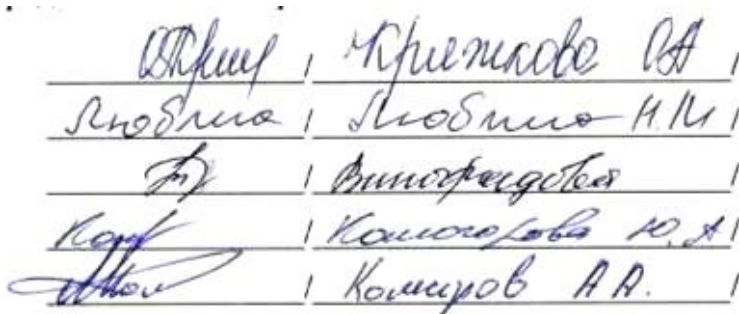 / Кряжкова ОА /
Любина / Любина Н.И /
/ Виноградова /
/ Комогорова Ю.А /
/ Комиров А А. /